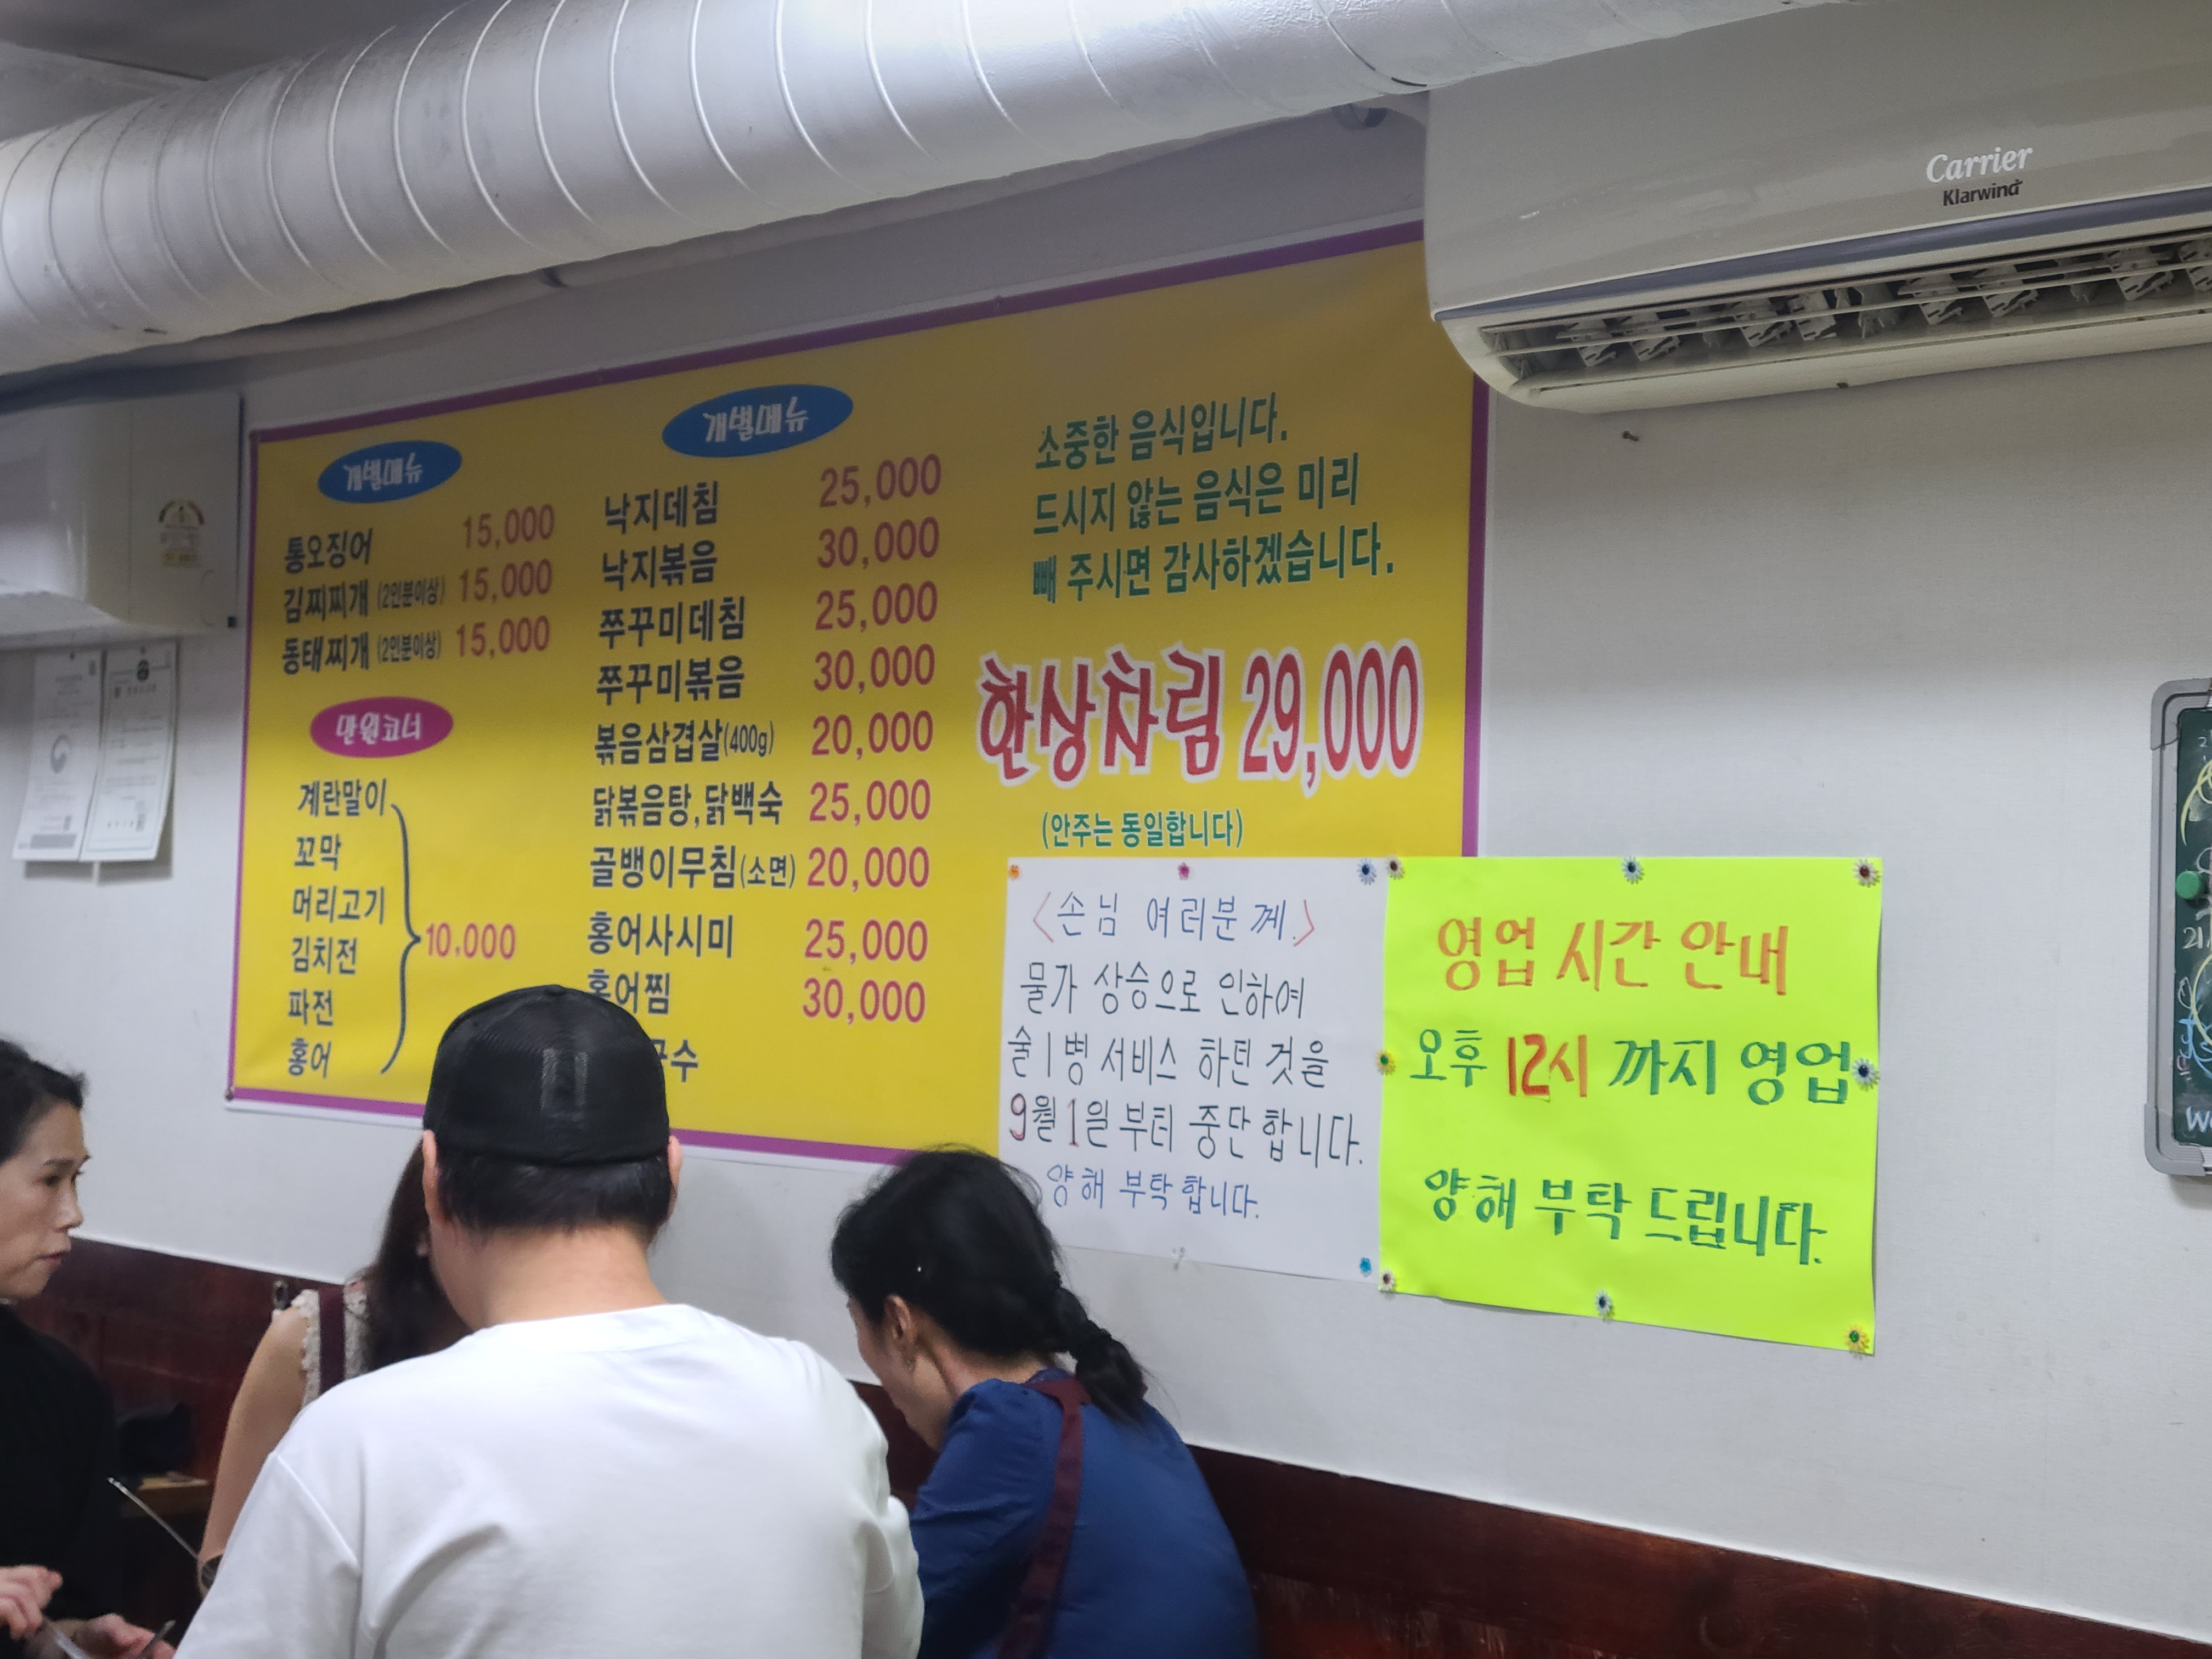 Carrier
Klarwind
개별메뉴
통오징어 15,000
김찌찌개 (2인분이상) 15,000
동태찌개 (2인분이상) 15,000
만원코너
계란말이
꼬막
머리고기
김치전
파전
홍어
10.000
개별메뉴
낙지데침 25,000
낙지볶음 30,000
쭈꾸미데침 25,000
쭈꾸미볶음 30,000
볶음삼겹살(400g) 20,000
닭볶음탕,닭백숙 25,000
골뱅이무침(소면) 20,000
홍어사시미 25,000
홍어찜 30,000
국수
소중한 음식입니다.
드시지 않는 음식은 미리
빼 주시면 감사하겠습니다.
한상차림 29,000
(안주는 동일합니다)
<손님 여러분께.>
물가 상승으로 인하여
술 1병 서비스 하던 것을
9월 1일 부터 중단 합니다.
양해 부탁 합니다.
영업 시간 안내
오후 12시 까지 영업
양해 부탁 드립니다.